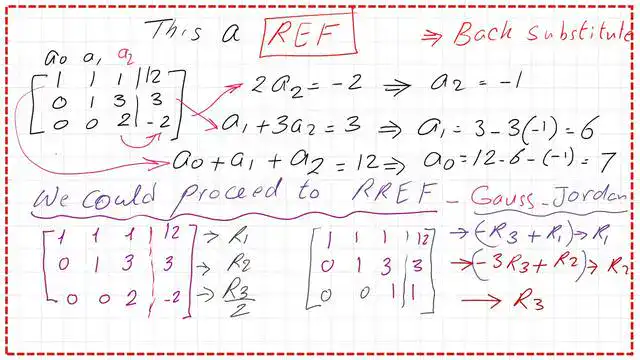 This a REF ⇒ Back substitute
a0 a1 a2
1 1 1 | 12
0 1 3 | 3
0 0 2 | -2
2a2 = -2 ⇒ a2 = -1
a1 + 3a2 = 3 ⇒ a1 = 3 - 3(-1) = 6
a0 + a1 + a2 = 12 ⇒ a0 = 12 - 6 - (-1) = 7
We could proceed to RREF - Gauss-Jordan
1 1 1 | 12 → R1
0 1 3 | 3 → R2
0 0 2 | -2 → R3/2
1 1 1 | 12 → (-R3 + R1) → R1
0 1 3 | 3 → (-3R3 + R2) → R2
0 0 1 | 1 → R3